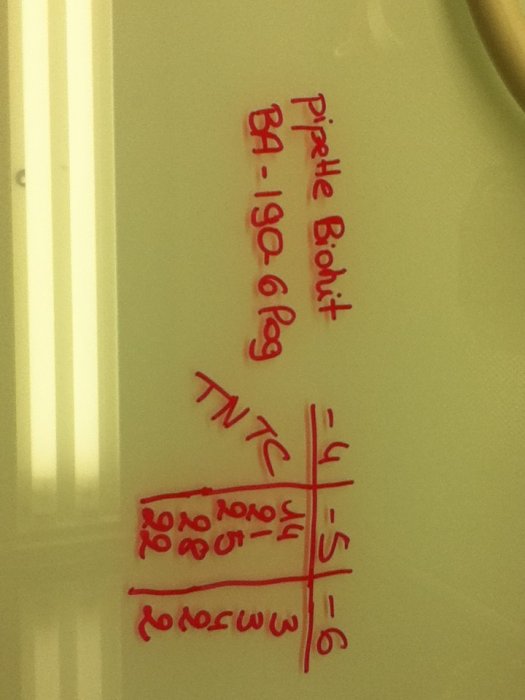 Pipette Biohit
BA-190-6 log
-4 -5 -6
TNTC 14 3
21 3
25 4
28 2
22 2